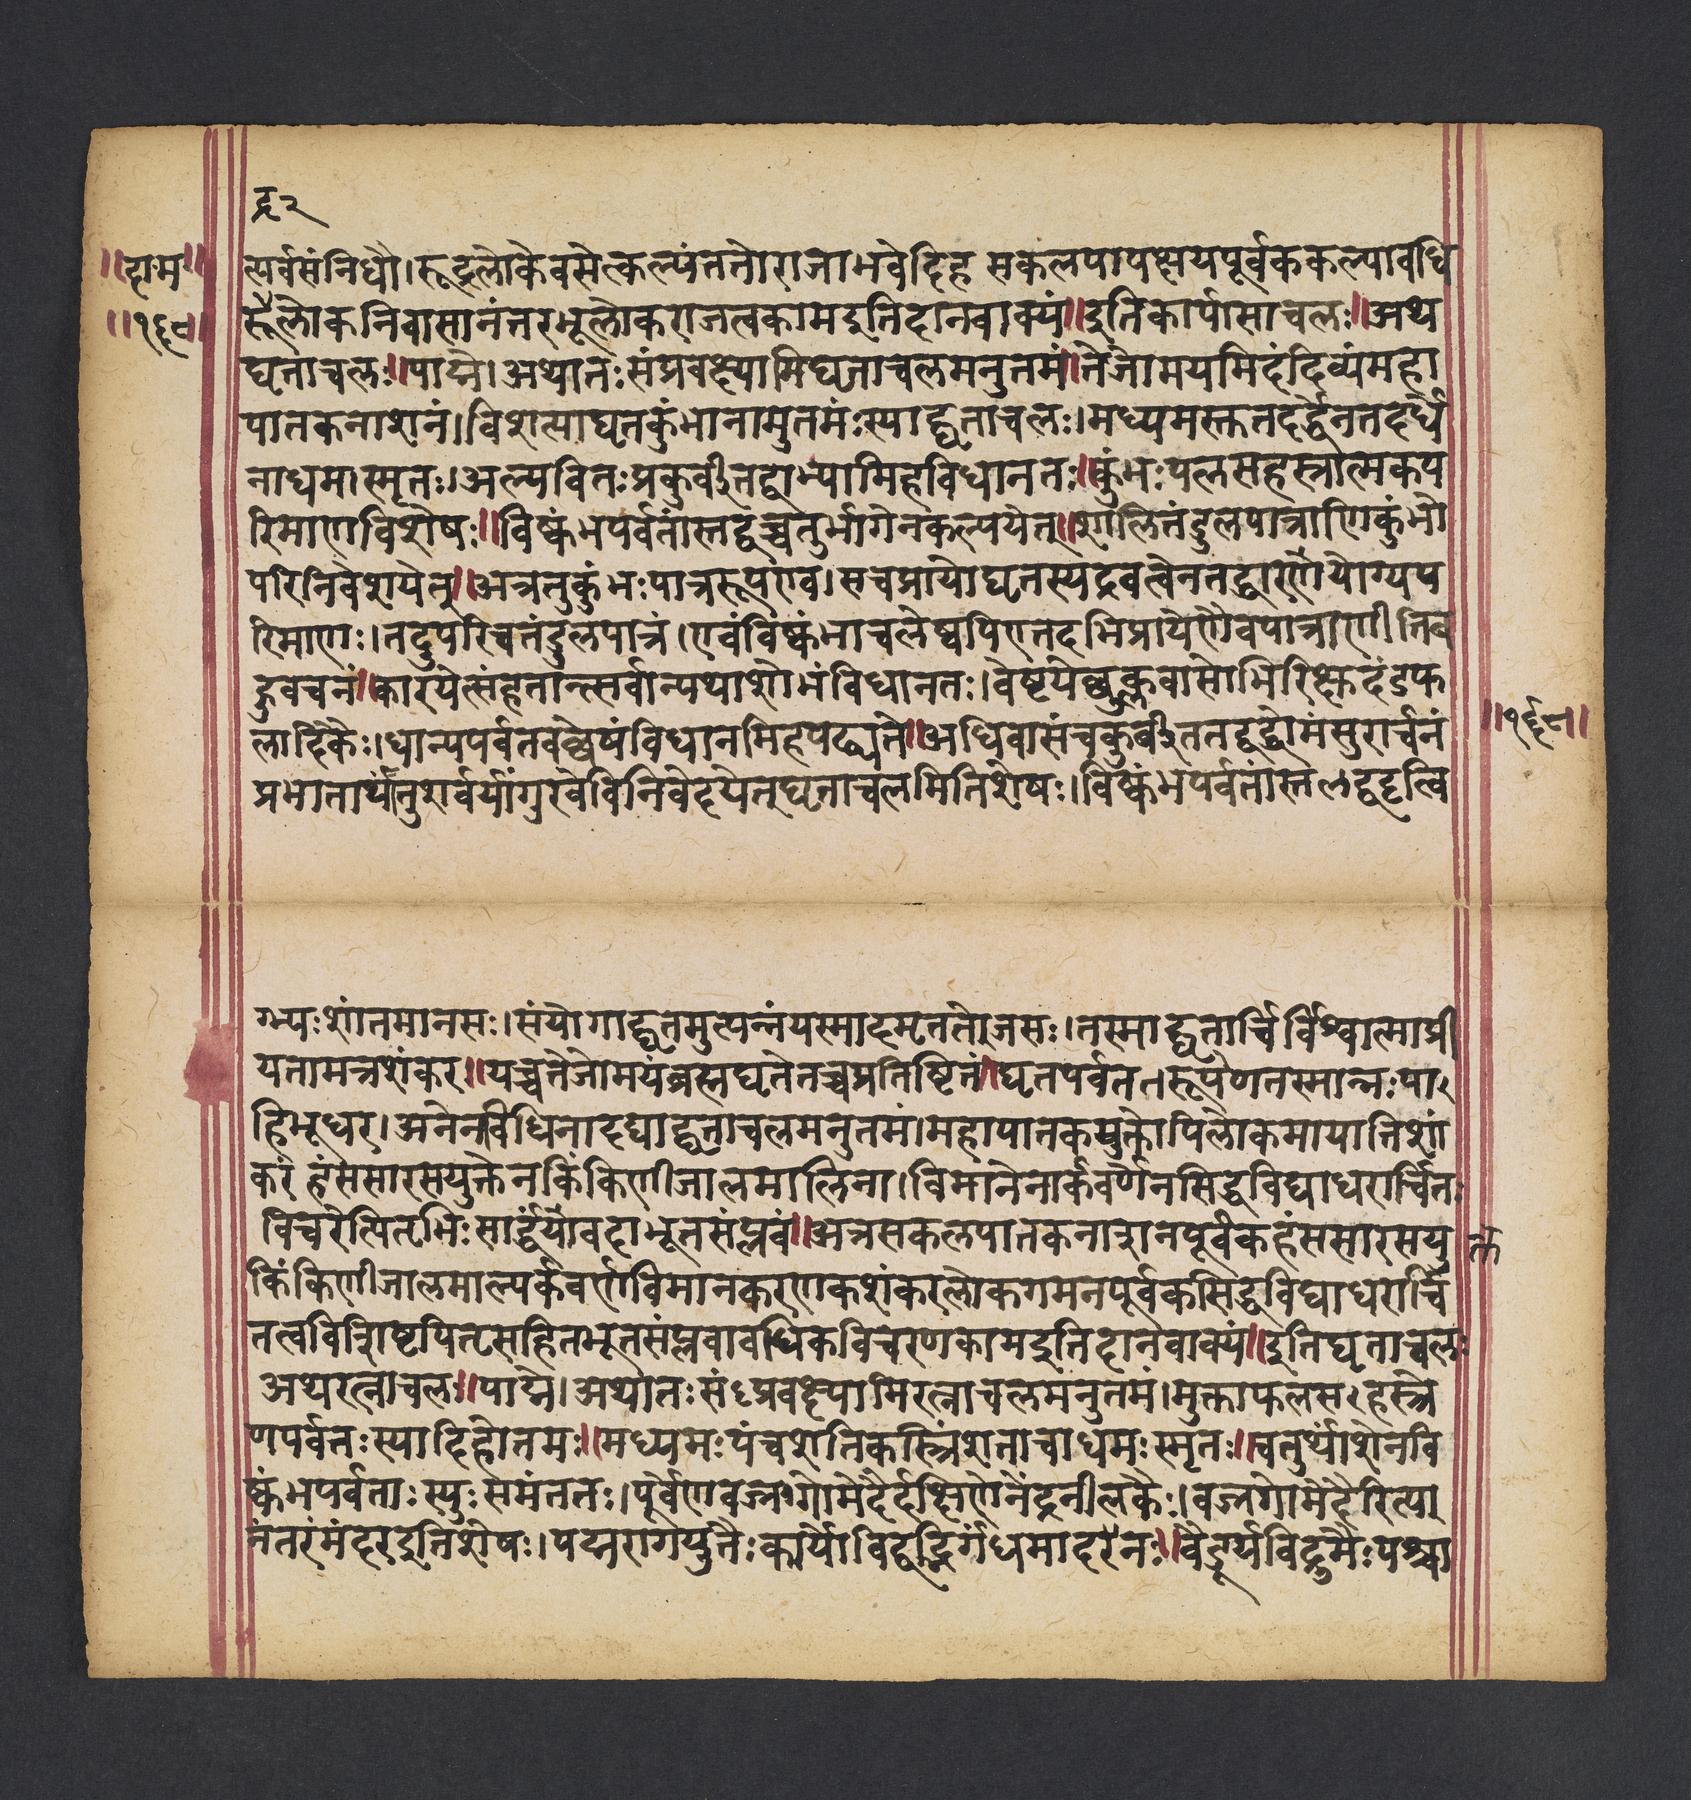 द्र२
॥दा॰म॰॥
॥१६८॥
त्पर्वसंनिधौ।रुद्रलोकेवसेत्कल्पंततोराजाभवेदिह सकलपापक्षयपूर्वककल्पावधि
रुद्रलोकनिवासानंतरभूलोकराजत्वकामइतिदानवाक्यं॥इतिकार्पासाचलः॥अथ
घृताचलः॥पाद्मे।अथातःसंप्रवक्ष्यामिघृताचलमनुतमं॥तेजोमयमिदंदिव्यंमहा
पातकनाशनं।विंशत्याघृतकुंभानामुतमःस्याद्घृताचलः।मध्यमस्तुतदर्द्धेनतदर्धे
नाधमःस्मृतः।अल्पवितःप्रकुर्वीतद्वाभ्यामिहविधानतः॥कुंभःपलसहस्रात्मकप
रिमाणविशेषः॥विष्कंभपर्वतांस्तद्वच्चतुर्भागेनकल्पयेत्॥शालितंदुलपात्राणिकुंभो
परिनिवेशयेत्॥अत्रतुकुंभःपात्ररूपएव।सचप्रायोघृतस्यद्रवत्वेनतद्धारणेयोग्यप
रिमाणः।तदुपरिचतंदुलपात्रं।एवंविष्कंभाचलेष्वपिएतदभिप्रायेणैवपात्राणीतिब
हुवचनं॥कारयेत्संहतान्त्सर्वान्यथाशोभंविधानतः।वेष्टयेच्छुक्लवासोभिरिक्षुदंडफ
लादिकैः।धान्यपर्वतवच्छेषंविधानमिहपठ्यते॥अधिवासंचकुर्वीततद्वद्धोमंसुरार्चनं
प्रभातायांतुशर्वर्यांगुरवेविनिवेदयेत्घृताचलमितिशेषः।विष्कंभपर्वतांस्तद्वदृत्वि
॥१६८॥
ग्भ्यःशांतमानसः।संयोगाद्घृतमुत्पन्नंयस्मादमृततेजसः।तस्माद्घृतार्चिर्विश्वात्माप्री
यतामत्रशंकरः॥यच्चतेजोमयंब्रह्मघृतेतच्चप्रतिष्टितं॥घृतपर्वतरूपेणतस्मान्नःपा
हिभूधर।अनेनविधिनादद्याद्घृताचलमनुतमं।महापातकयुक्तोपिलोकमायातिशां
करं हंससारसयुक्तेनकिंकिणीजालमालिना।विमानेनार्कवर्णेनसिद्धविद्याधरार्चितः
विचरेत्पितृभिःसार्द्धंयावदाभूतसंप्लवं॥अत्रसकलपातकनाशनपूर्वकहंससारसयु
क्त
किंकिणीजालमाल्यर्कवर्णविमानकरणकशंकरलोकगमनपूर्वकसिद्धविद्याधरार्चि
तत्वविशिष्टपितृसहितभूतसंप्लवावधिकविचरणकामइतिदानवाक्यं॥इतिघृताचलः
अथरत्नाचलः॥पाद्मे।अथातःसंप्रवक्ष्यामिरत्नाचलमनुतमं।मुक्ताफलसहस्रे
णपर्वतःस्यादिहोतमः॥मध्यमःपंचशतिकस्त्रिंशताचाधमःस्मृतः॥चतुर्थांशेनवि
ष्कंभपर्वताःस्युःसमंततः।पूर्वेणवज्रगोमेदैर्दक्षिणेनेंद्रनीलकैः।वज्रगोमेदैरित्या
नंतरंमंदरइतिशेषः।पद्मरागयुतैःकार्योविद्वद्भिर्गंधमादनः॥वैडूर्यविद्रुमैःपश्चा